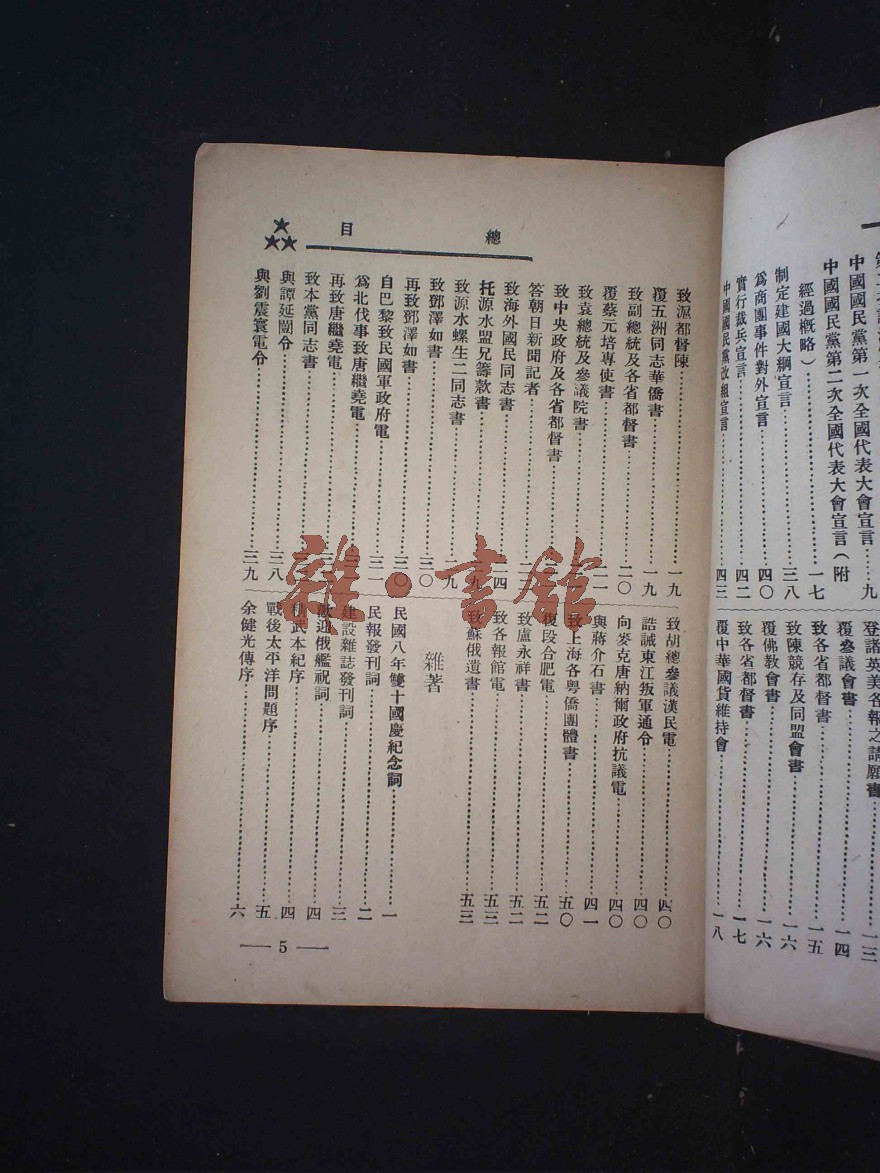 中國國民黨第一次全國代表大會宣言……九
中國國民黨第二次全國代表大會宣言（附
經過概略）……一七
制定建國大綱宣言……三八
爲商團事件對外宣言……四〇
實行裁兵宣言……四二
中國國民黨改組宣言……四三
登諸英美各報之請願書……一三
覆參議會書……一四
致各省都督書……一五
致陳競存及同盟會書……一六
覆佛教會書……一六
致各省都督書……一七
覆中華國貨維持會……一八
總目
致滬都督陳……一九
覆五洲同志華僑書……一九
致副總統及各省都督書……二〇
覆蔡元培專使書……二一
致袁總統及參議院書
致中央政府及各省都督書
答朝日新聞記者
致海外國民同志書
托源水盟兄籌款書
致源水螺生二同志書
致鄧澤如書……三〇
再致鄧澤如書……三〇
自巴黎致民國軍政府電……三一
爲北伐事致唐繼堯電
再致唐繼堯電
致本黨同志書
與譚延闓令……三八
與劉震寰電令……三九
致胡總參議漢民電……四〇
誥誡東江叛軍通令……四〇
向麥克唐納爾政府抗議電……四〇
與蔣介石書……四一
致上海各粵僑團體書……五〇
復段合肥電……五二
致盧永祥書……五二
致各報館電……五三
致蘇俄遺書……五三
雜著
民國八年雙十國慶紀念詞……一
民報發刊詞……二
建設雜誌發刊詞……三
歡迎俄艦祝詞……四
精武本紀序……四
戰後太平洋問題序……五
余健光傳序……六
— 5 —
雜·書館